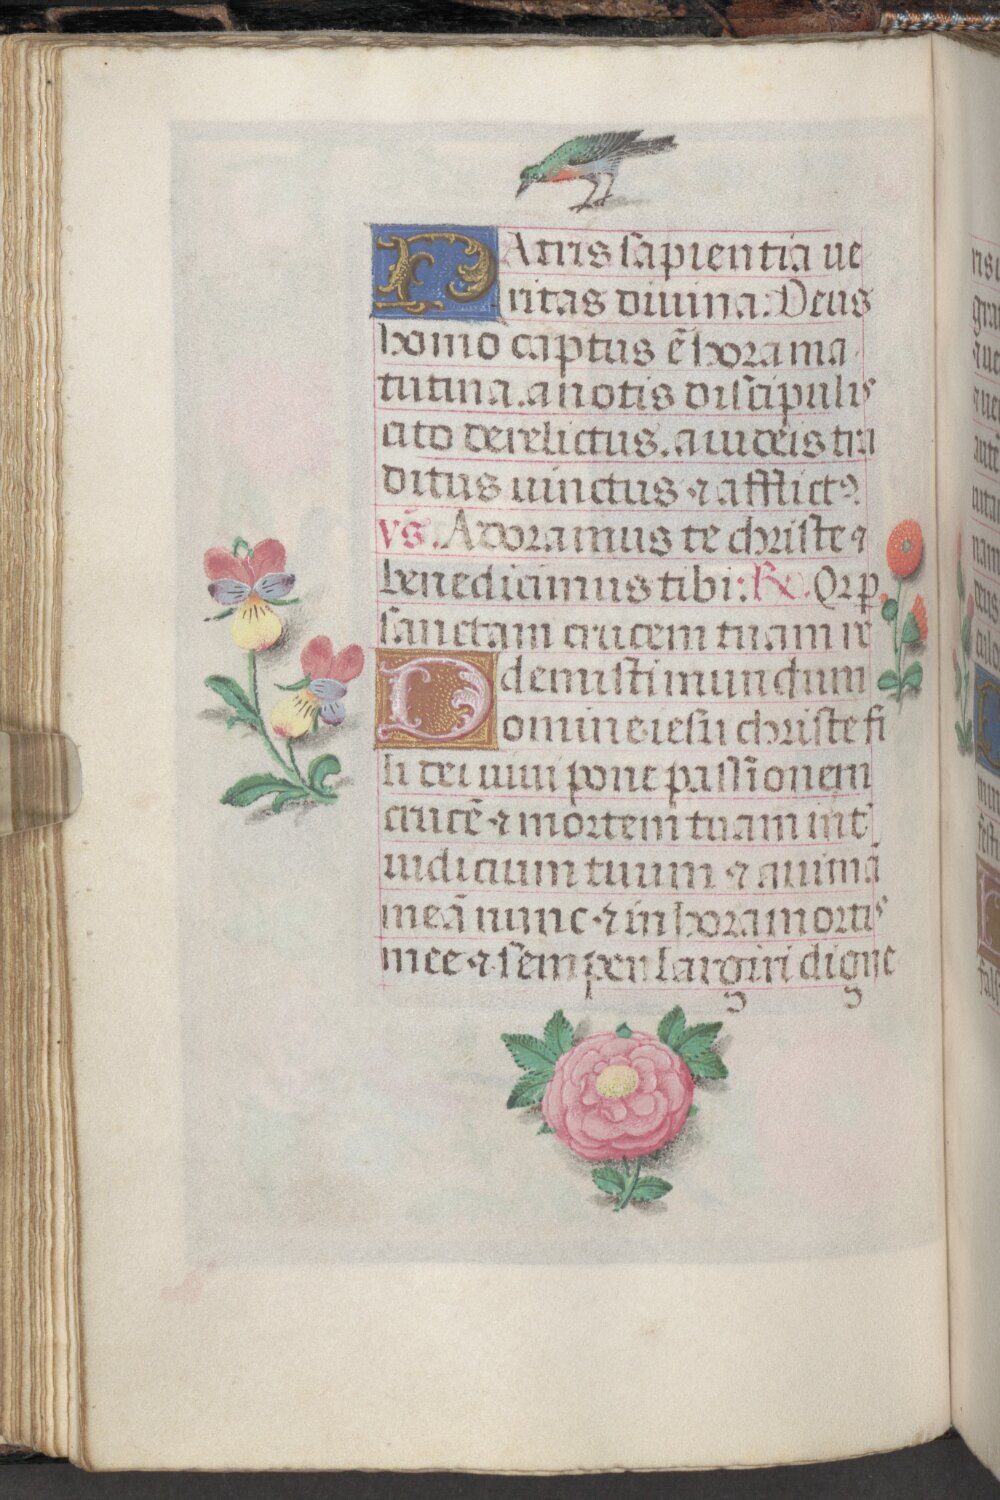 PAtris sapientia ue
ritas diuina: Deus
homo captus ē hora ma
tutina. a notis discipulis
cito derelictus. a iudeis tra
ditus uinctus ⁊ afflictꝰ
vs̄. Adoramus te christe ⁊
benedicimus tibi: ℟. Qr p
sanctam crucem tuam re
demisti mundum
Domine iesu christe fi
li dei uiui pone passionem
crucē ⁊ mortem tuam int̄
iudicium tuum ⁊ animā
meā nunc ⁊ in hora mortis
mee ⁊ semper largiri digne